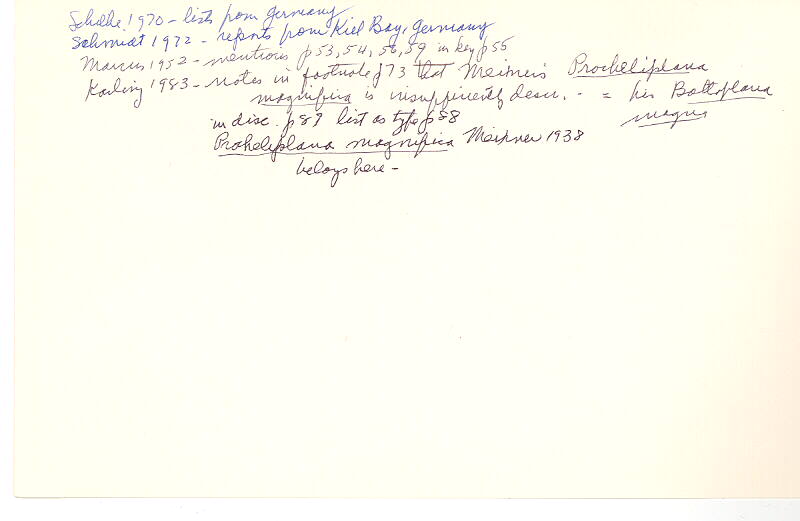 Schilke 1970 - lists from Germany
Schmidt 1972 - reports from Kiel Bay, Germany
Marcus 1952 - mentions p53, 54, 56, 59 in key p55
Karling 1983 - notes in footnote p73 that Meixner's Procheliplana
magnifica is insufficiently descr. - = his Bothoplana
magna
in disc. p87 list as type p88
Proheliplana magnifica Meixner 1938
belongs here -